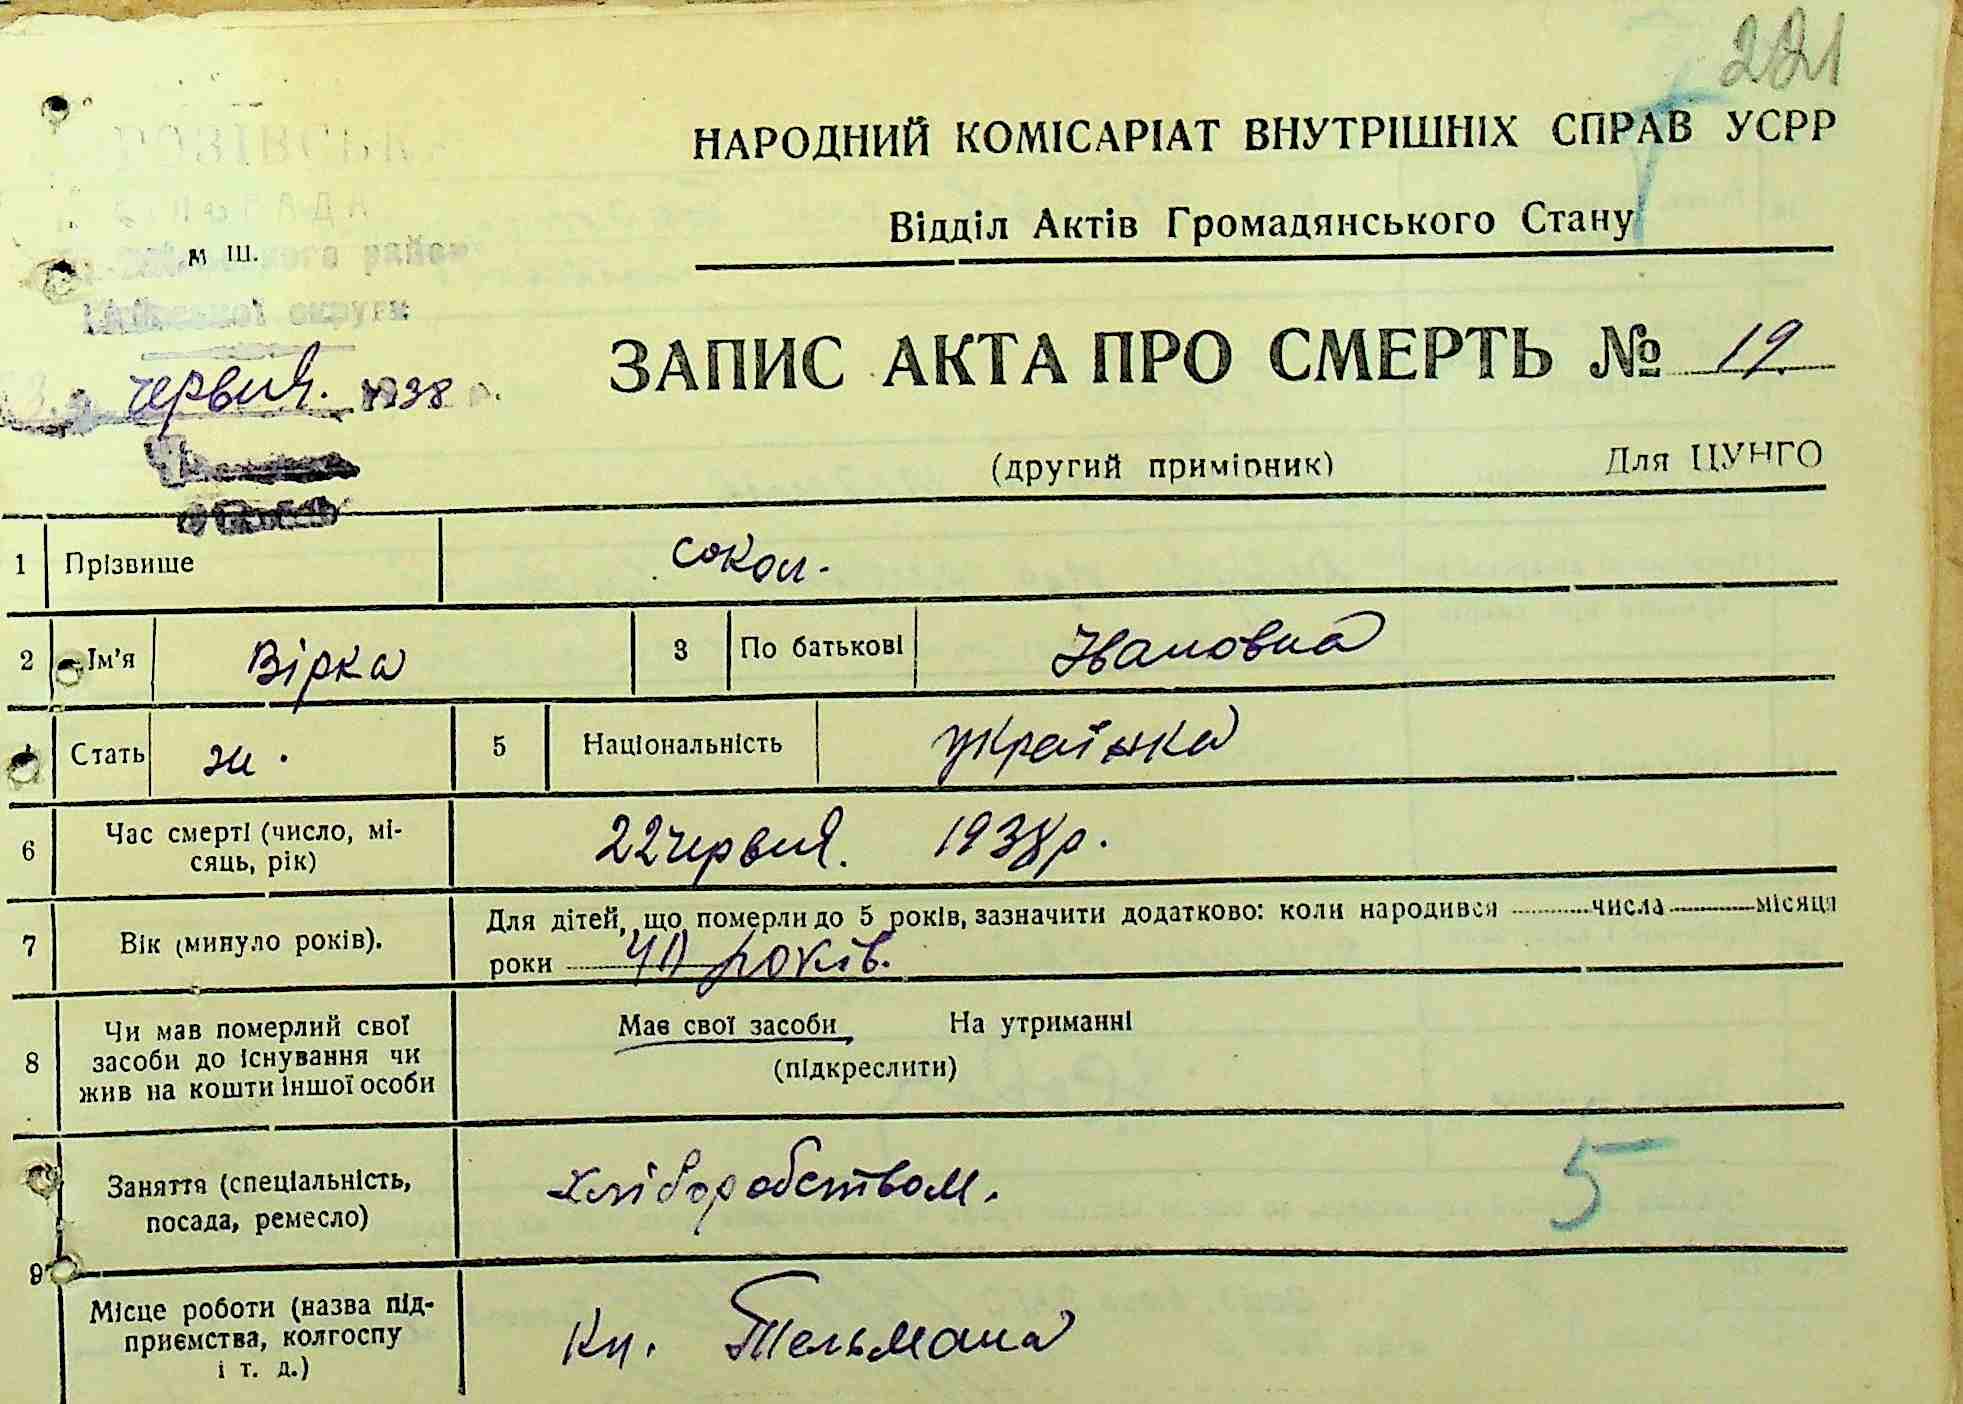 221
НАРОДНИЙ КОМІСАРІАТ ВНУТРІШНІХ СПРАВ УСРР
Відділ Актів Громадянського Стану
м Ш.
району
округи
червня. 1938
ЗАПИС АКТА ПРО СМЕРТЬ № 19.
(другий примірник) Для ЦУНГО
1 Прізвище Сокол.
2 Ім'я Вірка 3 По батькові Івановна
4 Стать ж. 5 Національність українка
6 Час смерті (число, мі-
сяць, рік) 22 червня. 1938 р.
7 Вік (минуло років). Для дітей, що померли до 5 років, зазначити додатково: коли народився числа місяця
роки 40 років.
8 Чи мав померлий свої
засоби до існування чи
жив на кошти іншої особи
Має свої засоби На утриманні
(підкреслити)
Заняття (спеціальність,
посада, ремесло) хліборобством. 5
9
Місце роботи (назва під-
приємства, колгоспу
і т. д.)
Кп. Тельмана